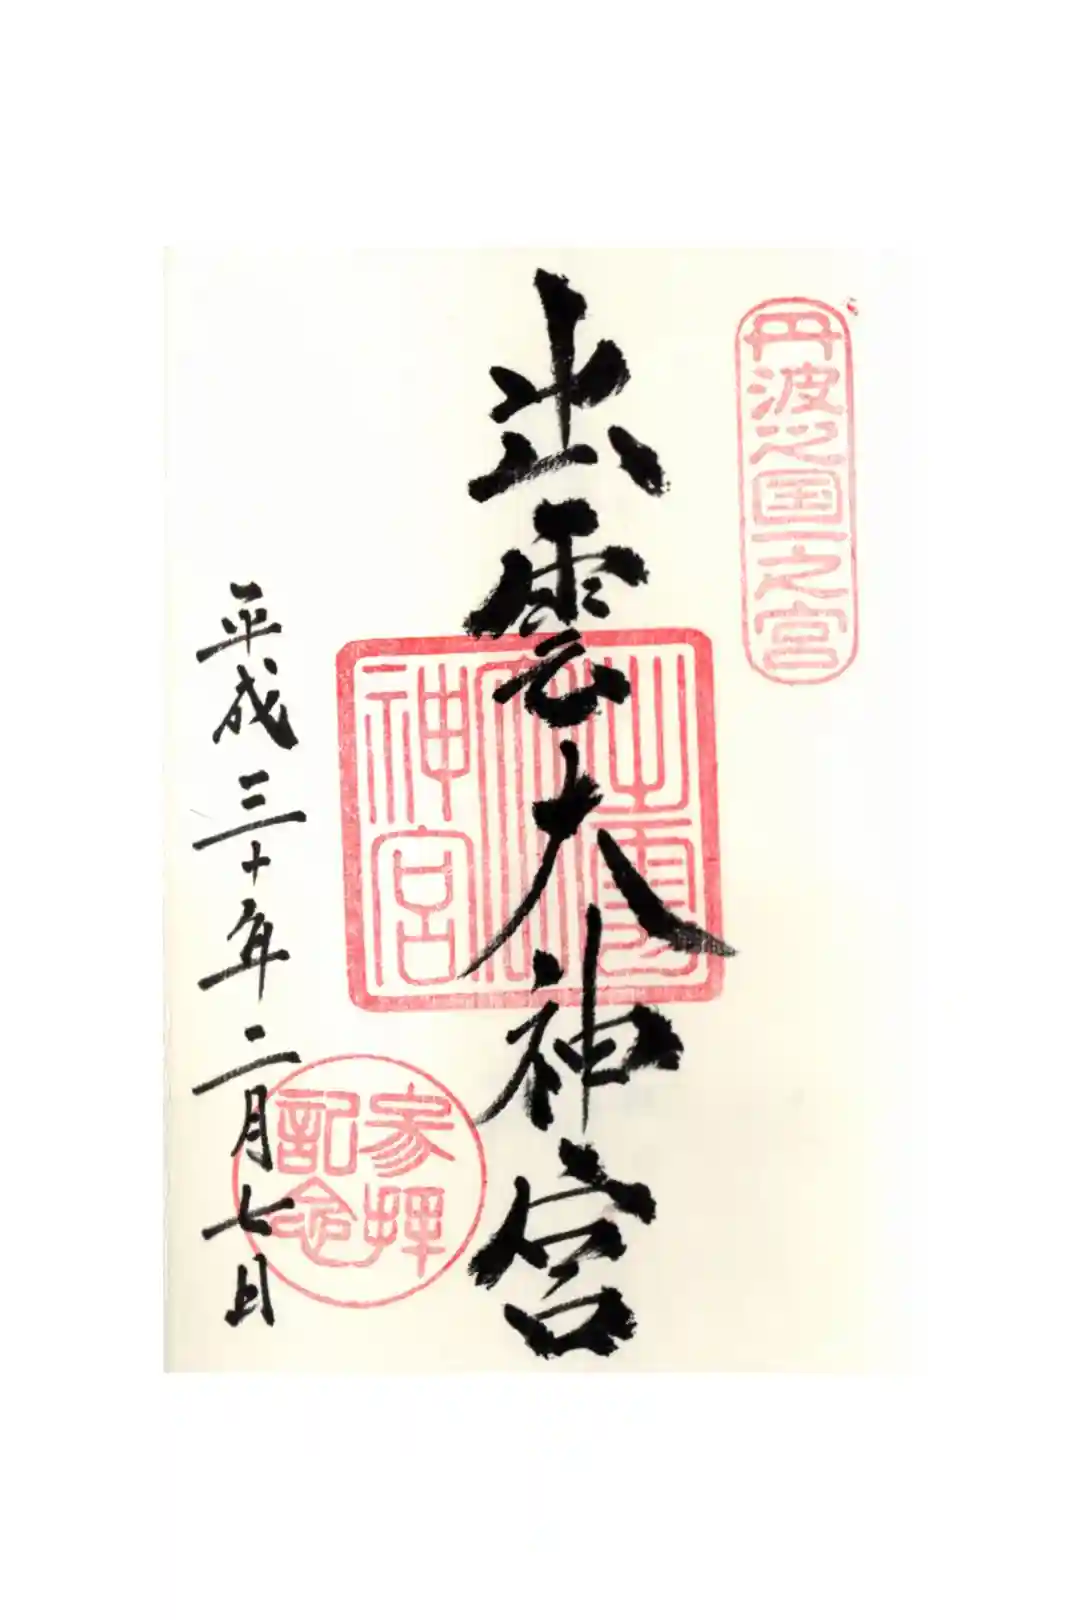 丹波之国一之宮
出雲大神宮
出雲
大
神宮
参拝
記念
平成三十年二月七日